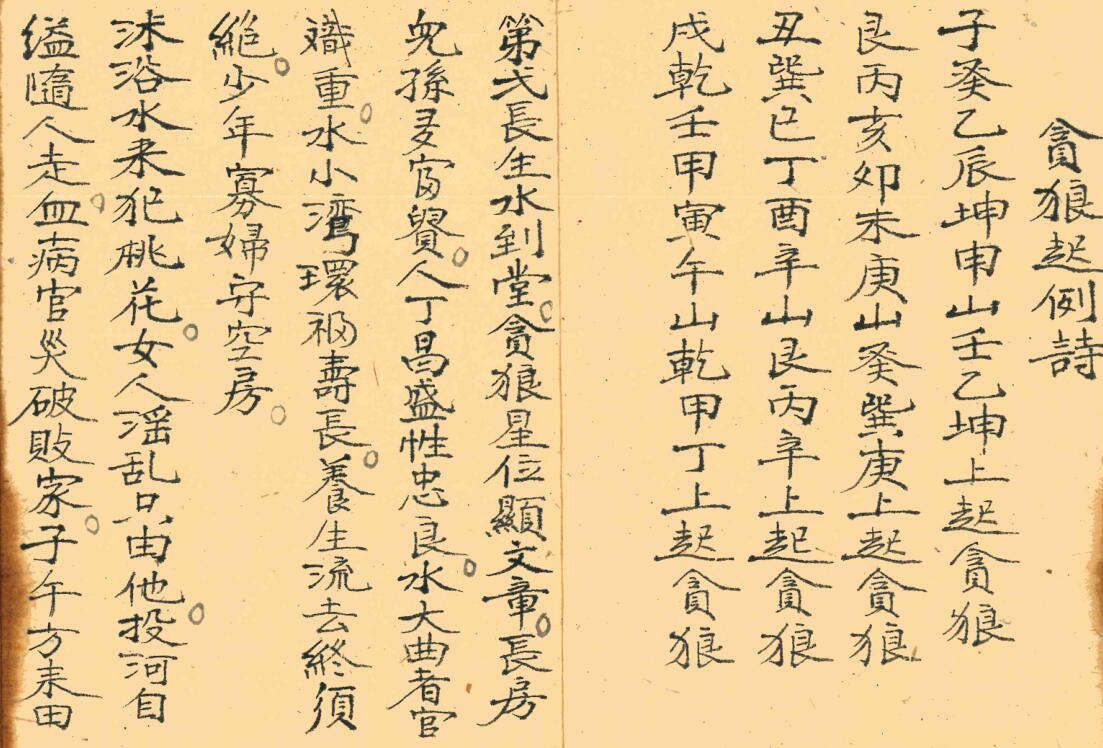 貪狼起例詩
子癸乙辰坤申山壬乙坤上起貪狼
艮丙亥卯未庚山癸巽庚上起貪狼
丑巽巳丁酉辛山艮丙辛上起貪狼
戌乾壬甲寅午山乾甲丁上起貪狼
第弍長生水到堂。貪狼星位顯文章。長房
兒孫多富貴。人丁昌盛性忠良。水大曲者官
職重。水小灣環福壽長。養生流去終須
絕。少年寡婦守空房。
沐浴水来犯桃花。女人滛乱只由他。投河自
缢隨人走。血病官災破敗家。子午方来田